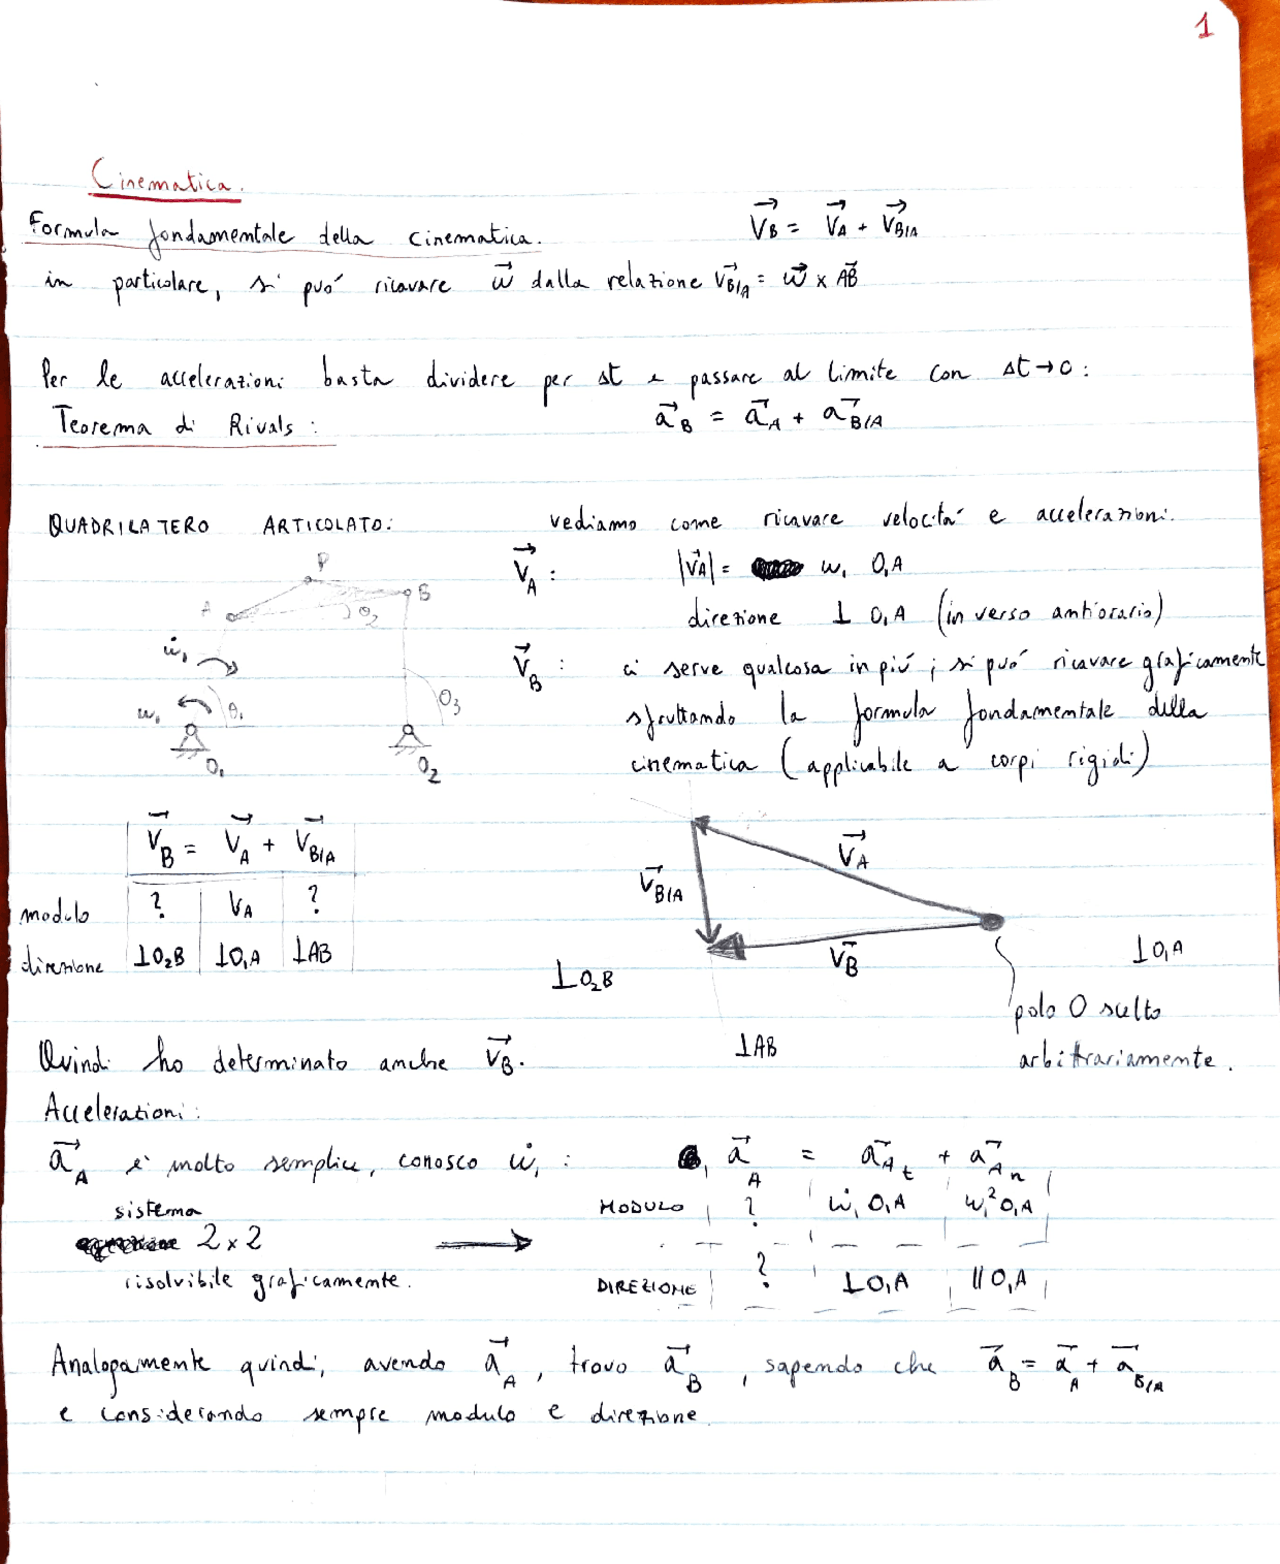 1
Cinematica.
Formula fondamentale della cinematica. V⃗_B = V⃗_A + V⃗_B/A
in particolare, si può ricavare ω⃗ dalla relazione V⃗_B/A = ω⃗ × AB⃗
Per le accelerazioni basta dividere per Δt e passare al limite con Δt→0:
Teorema di Rivals: a⃗_B = a⃗_A + a⃗_B/A
QUADRILATERO ARTICOLATO: vediamo come ricavare velocità e accelerazioni.
P
A
B
θ₂
ω̇₁
ω₁
θ₁
θ₃
O₁
O₂
V⃗_A : |V⃗_A| = ω₁ O₁A
direzione ⊥ O₁A (in verso antiorario)
V⃗_B : ci serve qualcosa in più; si può ricavare graficamente
sfruttando la formula fondamentale della
cinematica (applicabile a corpi rigidi)
V⃗_B = V⃗_A + V⃗_B/A
modulo ? V_A ?
direzione ⊥O₂B ⊥O₁A ⊥AB
V⃗_A
V⃗_B/A
V⃗_B
⊥O₁A
⊥O₂B
⊥AB
polo O scelto
arbitrariamente.
Quindi ho determinato anche V⃗_B.
Accelerazioni:
a⃗_A è molto semplice, conosco ω̇₁ : a⃗_A = a⃗_At + a⃗_An
MODULO ? ω̇₁ O₁A ω₁² O₁A
DIREZIONE ? ⊥O₁A ∥O₁A
sistema
2×2
risolvibile graficamente.
Analogamente quindi, avendo a⃗_A, trovo a⃗_B, sapendo che a⃗_B = a⃗_A + a⃗_B/A
e considerando sempre modulo e direzione.